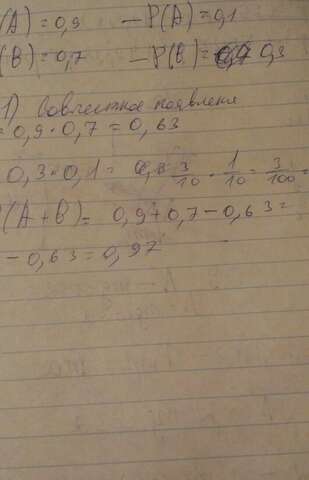 (A) = 0,9 — P(A) = 0,1
(B) = 0,7 — P(B) = 0,3
1) Совместное появлени
= 0,9 · 0,7 = 0,63
0,3 · 0,1 = 3/10 · 1/10 = 3/100 =
(A + B) = 0,9 + 0,7 - 0,63 =
- 0,63 = 0,97